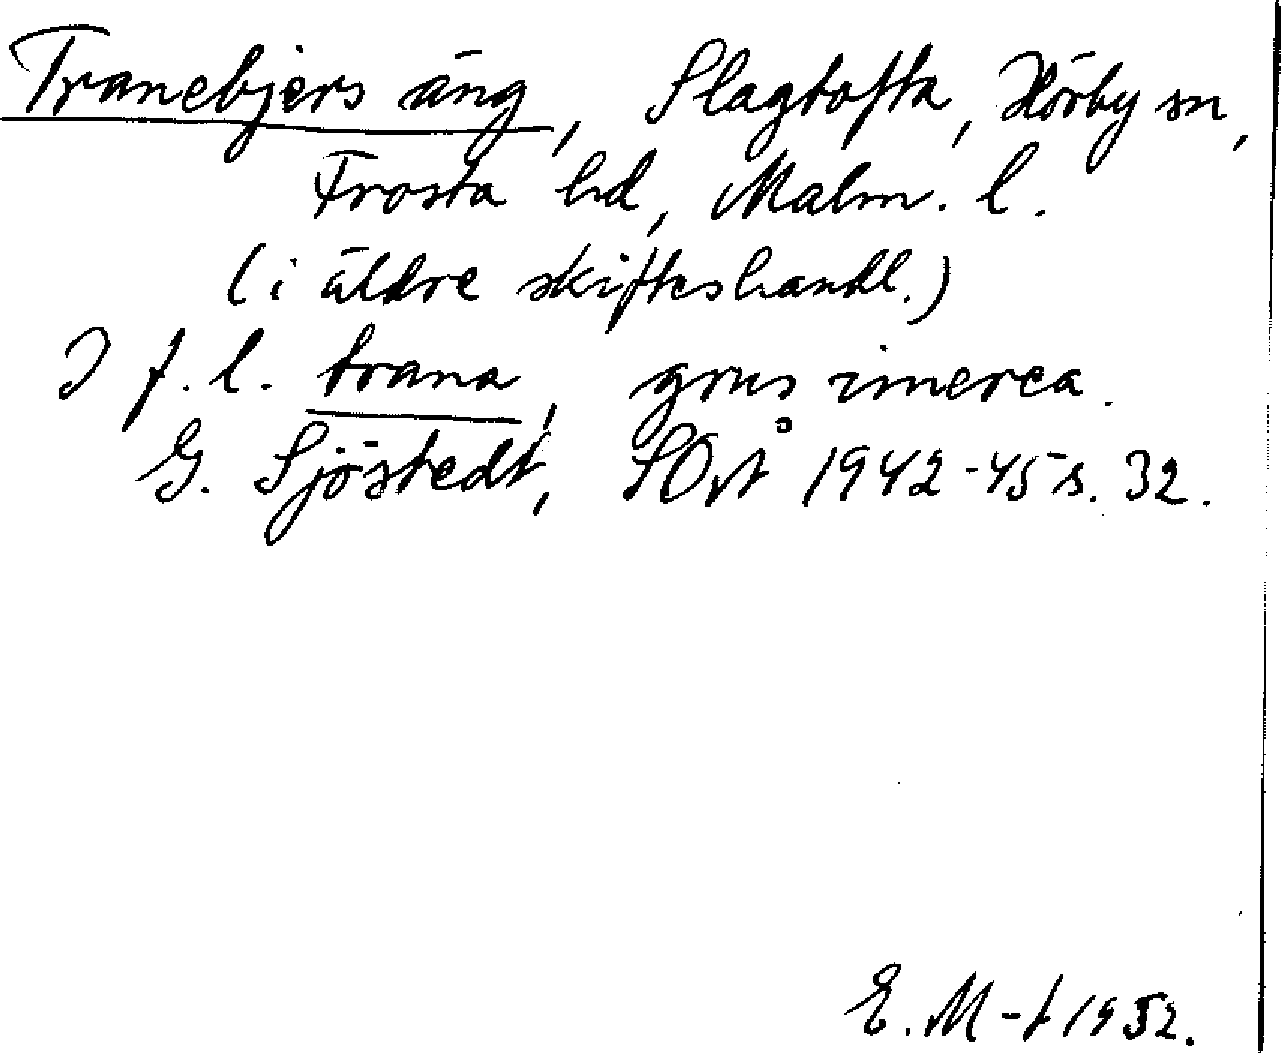 Tranebjers äng, Slagtofta, Hörby sn,
Frosta hd, Malm. l.
(i äldre skifteshandl.)
I f. l. trana, grus cinerea.
G. Sjöstedt, SOrtÅ 1942-45 s. 32.
E. M-t 1952.